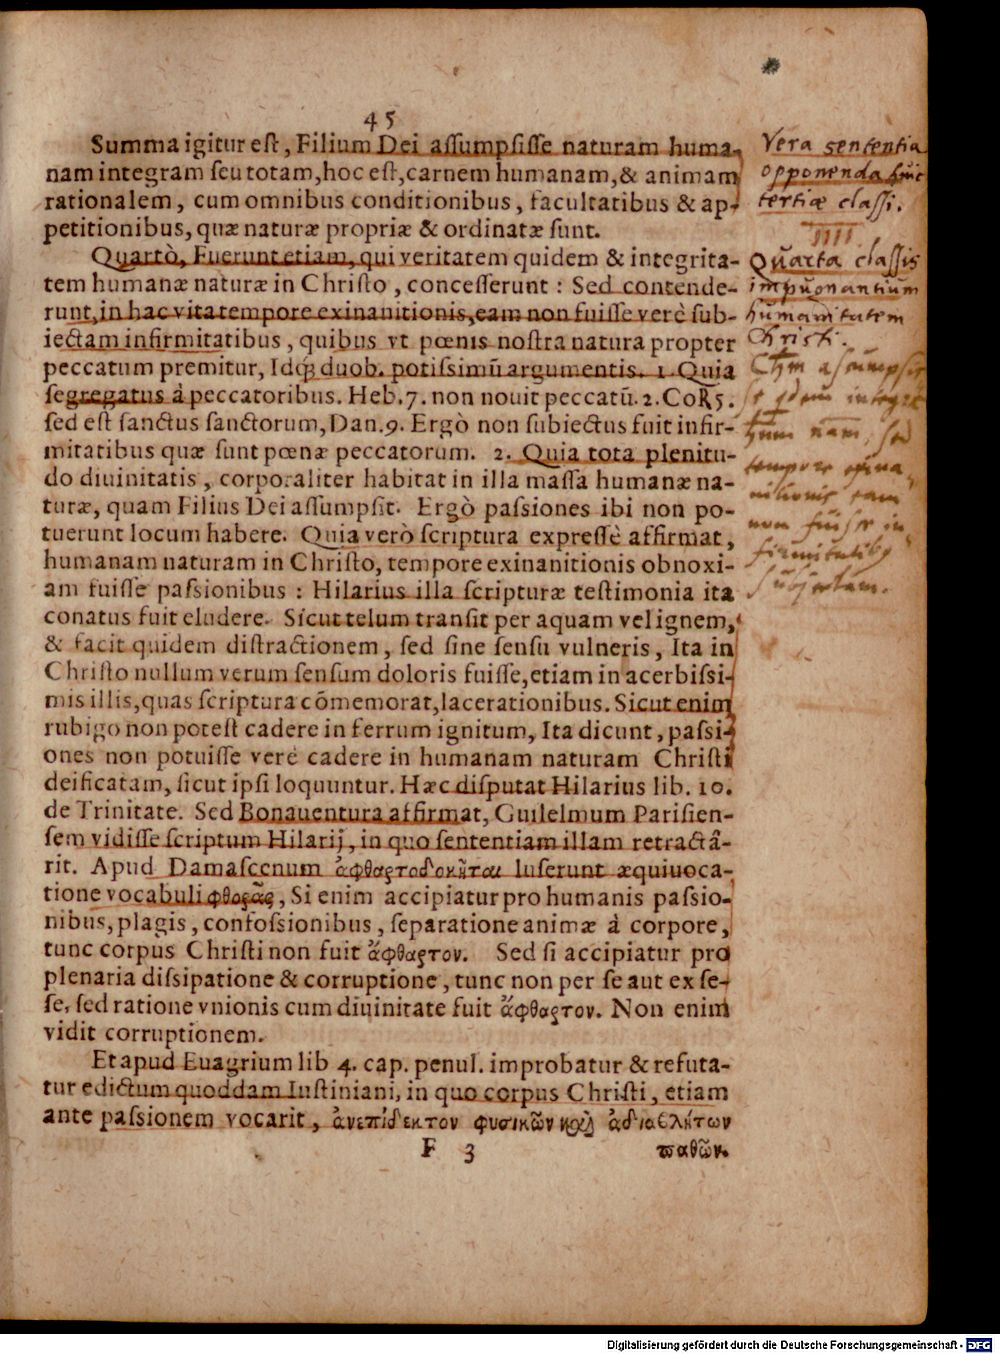 45
Summa igitur est, Filium Dei assumpsisse naturam huma-
nam integram seu totam, hoc est, carnem humanam, & animam
rationalem, cum omnibus conditionibus, facultatibus & ap-
petitionibus, quæ naturæ propriæ & ordinatæ sunt.
Quartò, Fuerunt etiam, qui veritatem quidem & integrita-
tem humanæ naturæ in Christo, concesserunt: Sed contende-
runt, in hac vita tempore exinanitionis, eam non fuisse verè sub-
iectam infirmitatibus, quibus vt pœnis nostra natura propter
peccatum premitur, Idq́; duob. potissimũ argumentis. 1. Quia
segregatus à peccatoribus. Heb. 7. non nouit peccatũ. 2. CoR 5.
sed est sanctus sanctorum, Dan. 9. Ergò non subiectus fuit infir-
mitatibus quæ sunt pœnæ peccatorum. 2. Quia tota plenitu-
do diuinitatis, corporaliter habitat in illa massa humanæ na-
turæ, quam Filius Dei assumpsit. Ergò passiones ibi non po-
tuerunt locum habere. Quia verò scriptura expressè affirmat,
humanam naturam in Christo, tempore exinanitionis obnoxi-
am fuisse passionibus: Hilarius illa scripturæ testimonia ita
conatus fuit eludere. Sicut telum transit per aquam vel ignem,
& facit quidem distractionem, sed sine sensu vulneris, Ita in
Christo nullum verum sensum doloris fuisse, etiam in acerbissi-
mis illis, quas scriptura cõmemorat, lacerationibus. Sicut enim
rubigo non potest cadere in ferrum ignitum, Ita dicunt, passi-
ones non potuisse verè cadere in humanam naturam Christi
deificatam, sicut ipsi loquuntur. Hæc disputat Hilarius lib. 10.
de Trinitate. Sed Bonauentura affirmat, Guilelmum Parisien-
sem vidisse scriptum Hilarij, in quo sententiam illam retractâ-
rit. Apud Damascenum ἀφθαρτοδοκῆται luserunt æquiuoca-
tione vocabuli φθορᾶς, Si enim accipiatur pro humanis passio-
nibus, plagis, confossionibus, separatione animæ à corpore,
tunc corpus Christi non fuit ἄφθαρτον. Sed si accipiatur pro
plenaria dissipatione & corruptione, tunc non per se aut ex se-
se, sed ratione vnionis cum diuinitate fuit ἄφθαρτον. Non enim
vidit corruptionem.
Et apud Euagrium lib 4. cap. penul. improbatur & refuta-
tur edictum quoddam Iustiniani, in quo corpus Christi, etiam
ante passionem vocarit, ἀνεπίδεκτον φυσικῶν καὶ ἀδιαβλήτων
F 3
παθῶν.
Vera sententia
opponenda huic
tertiæ classi.
IIII.
Quarta classis
impugnantium
humanitatem
Christi.
assumpsis
integrã
sed
tempore exina-
nitionis eam
non fuisse in-
firmitatibus
subjectam.
Digitalisierung gefördert durch die Deutsche Forschungsgemeinschaft - DFG